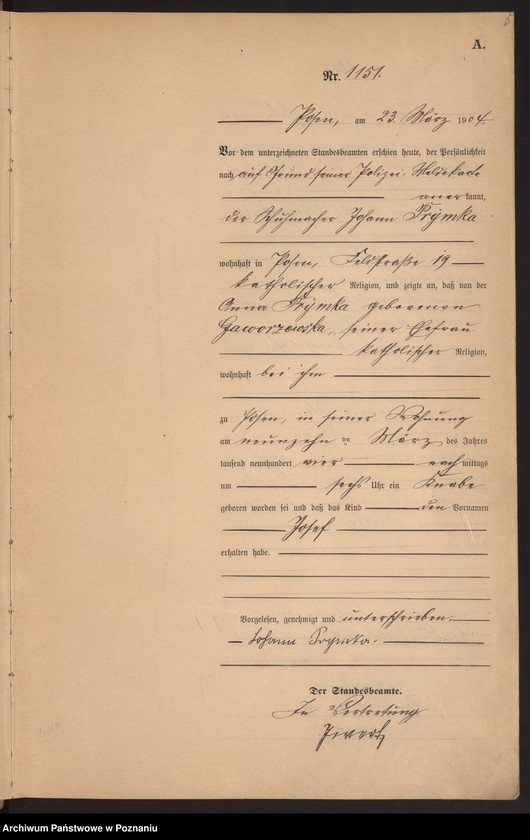 5
A.
Nr. 1151.
Posen, am 23. März 1904.
Vor dem unterzeichneten Standesbeamten erschien heute, der Persönlichkeit
nach auf Grund seiner Polizei-Meldekarte
anerkannt,
der Schuhmacher Johann Prymka
wohnhaft in Posen, Feldstraße 19
katholischer Religion, und zeigte an, daß von der
Anna Prymka geborenen
Gaworzewska, seiner Ehefrau
katholischer Religion,
wohnhaft bei ihm
zu Posen, in seiner Wohnung
am neunzehnten März des Jahres
tausend neunhundert vier nachmittags
um sechs Uhr ein Knabe
geboren worden sei und daß das Kind den Vornamen
Josef
erhalten habe.
Vorgelesen, genehmigt und unterschrieben.
Johann Prymka
Der Standesbeamte.
In Vertretung
Archiwum Państwowe w Poznaniu